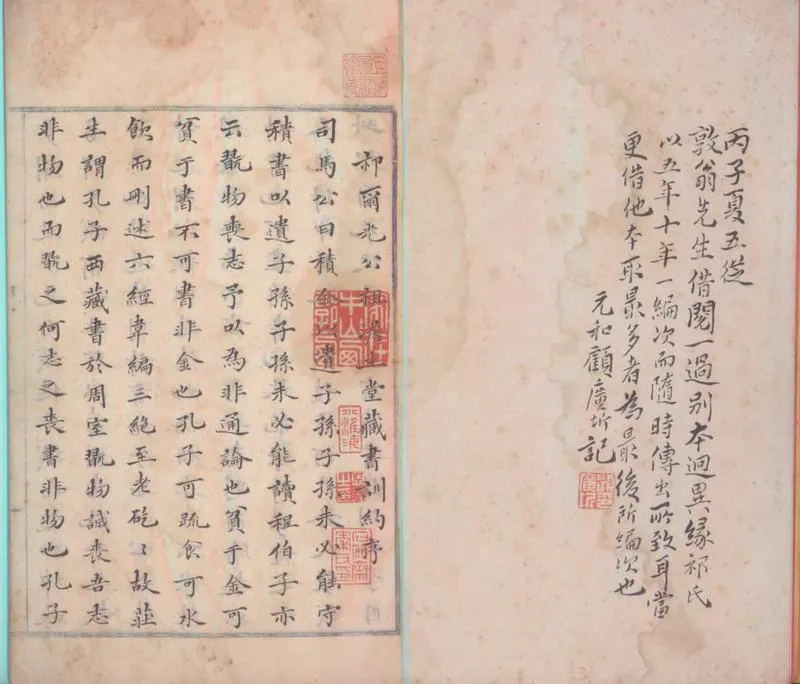 丙子夏五從
敦翁先生借閱一過別本迥異緣祁氏
以五年十年一編次而隨時傳出所致耳當
更借他本取最多者為最後所編次也
元和顧廣圻記
祁爾光公祖澹生堂藏書訓約序
司馬公曰積金以遺子孫子孫未必能守
積書以遺子孫子孫未必能讀程伯子亦
云翫物喪志予以為非通論也貧于金可
貧于書不可書非金也孔子可疏食可水
飲而刪述六經韋編三絕至老矻〻故莊
生謂孔子西藏書於周室翫物誠喪吾志
非物也而翫之何志之喪書非物也孔子